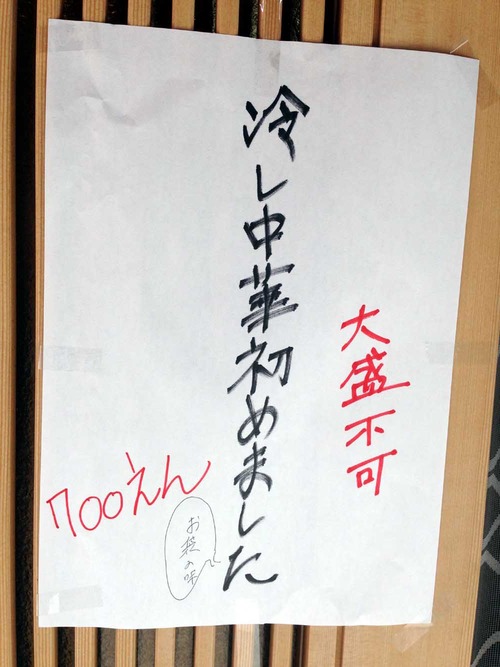 大盛不可
冷し中華初めました
700えん
お袋の味